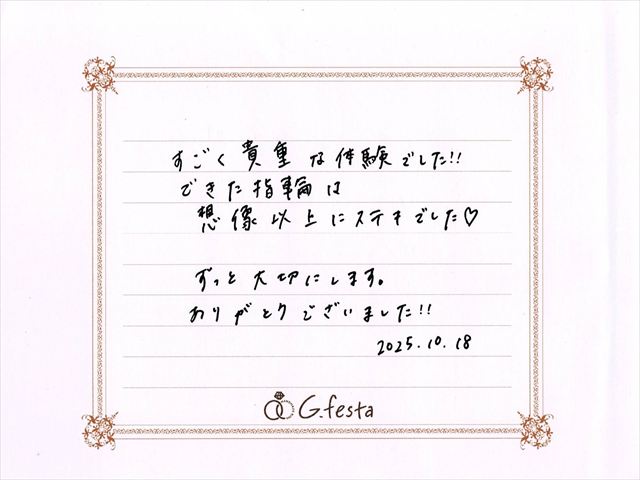 すごく貴重な体験でした!!
できた指輪は
想像以上にステキでした♡
ずっと大切にします。
ありがとうございました!!
2025.10.18
G.festa